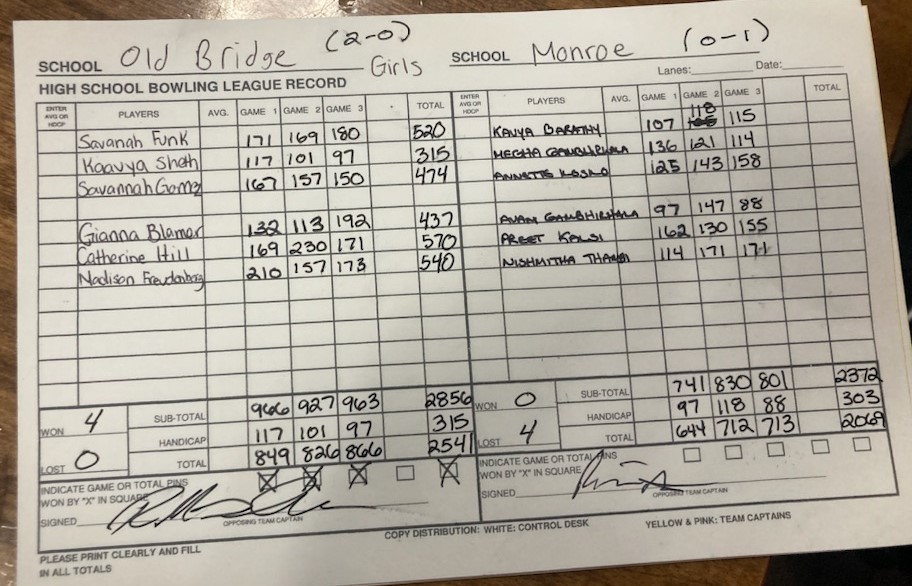 SCHOOL Old Bridge (2-0) Girls SCHOOL Monroe (0-1)
HIGH SCHOOL BOWLING LEAGUE RECORD Lanes: Date:
ENTER AVG OR HDCP PLAYERS AVG. GAME 1 GAME 2 GAME 3 TOTAL ENTER AVG OR HDCP PLAYERS AVG. GAME 1 GAME 2 GAME 3 TOTAL
Savanah Funk 171 169 180 520 KAVYA BARATHY 107 118 115
Kaavya Sheth 117 101 97 315 MEGHA GAMBHIRHALA 136 121 114
Savannah Gomez 167 157 150 474 ANNETTE 125 143 158
Gianna Blamar 132 113 192 437 97 147 88
Catherine Hill 169 230 171 570 PREET KALSI 162 130 155
Madison Freudenberg 210 157 173 540 NISHMITHA 114 171 171
SUB-TOTAL 966 927 963 2856 SUB-TOTAL 741 830 801 2372
WON 4 HANDICAP 117 101 97 315 WON 0 HANDICAP 97 118 88 303
LOST 0 TOTAL 849 826 866 2541 LOST 4 TOTAL 644 712 713 2069
INDICATE GAME OR TOTAL PINS WON BY "X" IN SQUARE X X X X INDICATE GAME OR TOTAL PINS WON BY "X" IN SQUARE
SIGNED OPPOSING TEAM CAPTAIN SIGNED OPPOSING TEAM CAPTAIN
PLEASE PRINT CLEARLY AND FILL IN ALL TOTALS COPY DISTRIBUTION: WHITE: CONTROL DESK YELLOW & PINK: TEAM CAPTAINS